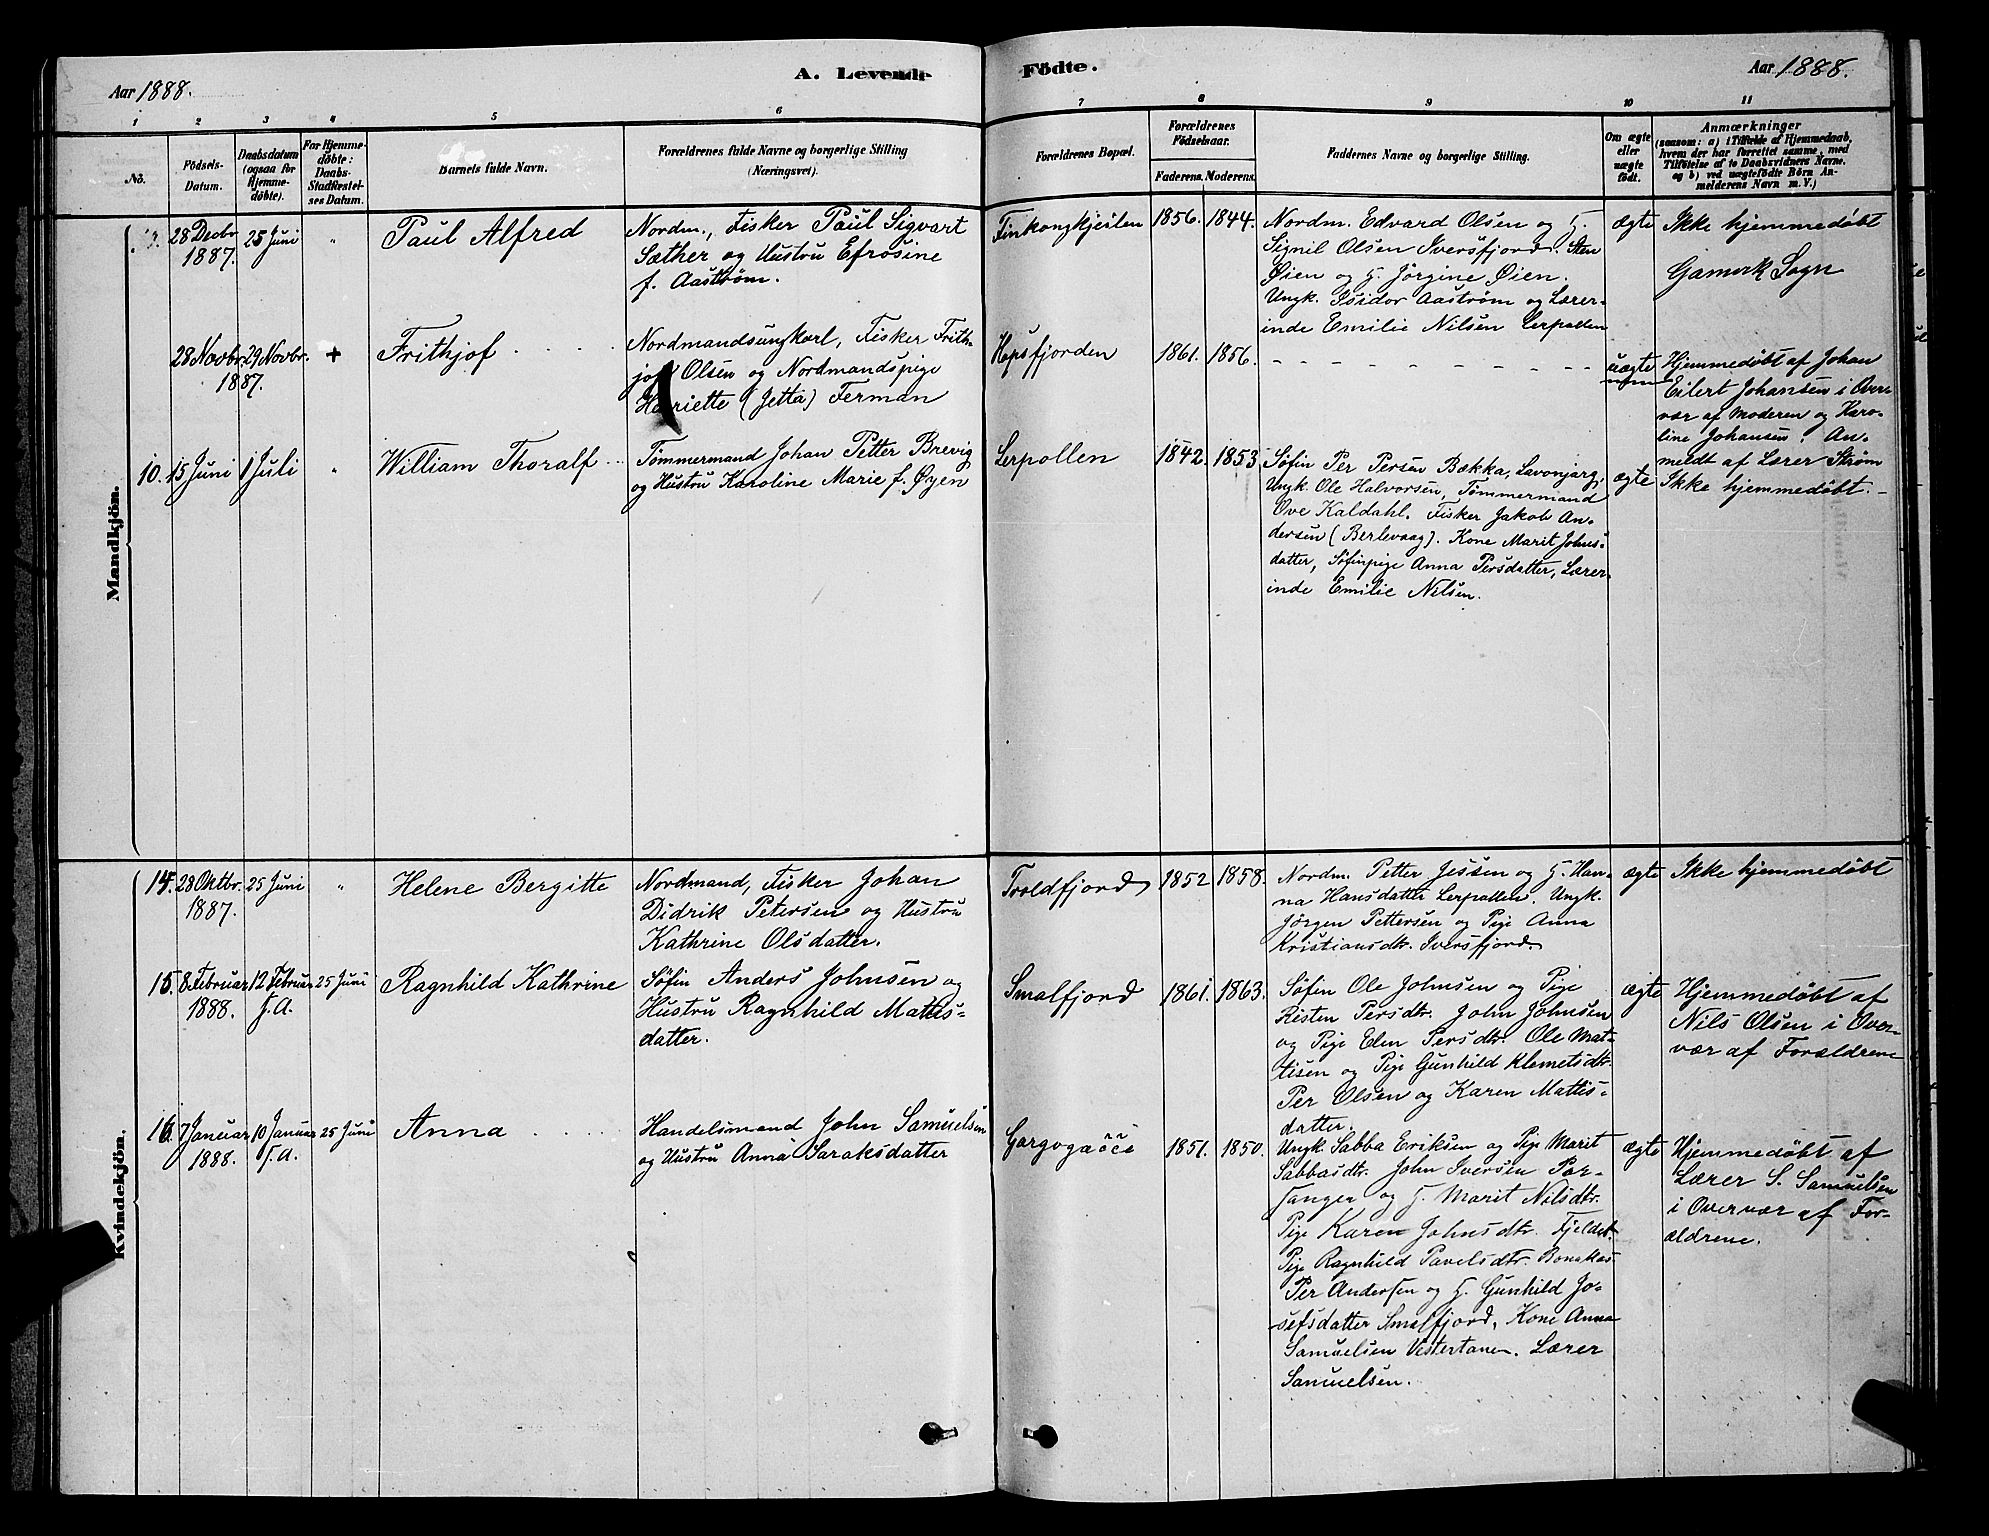 A. Levende Födte.
Aar 1888.
Aar 1888.
1 2 3 4 5 6 7 8 9 10 11
No.
Födsels-Datum.
Daabsdatum (ogsaa for Hjemmedöbte).
For Hjemmedöbte: Daabs-Stadfæstelses Datum.
Barnets fulde Navn.
Forældrenes fulde Navne og borgerlige Stilling (Næringsvei).
Forældrenes Bopæl.
Forældrenes Födselsaar.
Faderens. Moderens.
Faddernes Navne og borgerlige Stilling.
Om ægte eller uægte födt.
Anmærkninger
(saasom: a) i Tilfælde af Hjemmedaab, hvem der har forrettet samme, med Tilföielse af to Daabsvidners Navne. og b) ved uægtefödte Börn Anmelderens Navn m. V.)
Mandkjön.
28 Decbr 1887.
25 Juni
"
Paul Alfred
Nordm., Fisker Paul Sigvart
Sæther og Hustru Efrosine
f. Aaström.
Finkongkjeilen
1856. 1844.
Nordm. Edvard Olsen og H.
Signil Olsen Iversfjord. Sten
Øien og H. Jörgine Øien.
Ungk. Isidor Aaström og Lærer-
inde Emilie Nilsen Lerpollen
ægte
Ikke hjemmedøbt
Gamvik Sogn
28 Novbr 1887.
29 Novbr.
+
Frithjof . . . .
Nordmandsungkarl, Fisker Frith-
jof Olsen og Nordmandspige
Henriette (Jetta) Ferman
Hopsfjorden
1861. 1856.
- - - - - - - - -
uægte
Hjemmedøbt af Johan
Eilert Johansen i Over-
vær af Moderen og Karo-
line Johansen. An-
meldt af Lærer Strøm
10.
15 Juni
1 Juli
"
William Thoralf ..
Tømmermand Johan Petter Brevig
og Hustru Karoline Marie f. Øyen
Lerpollen
1842. 1853
Søfin Per Persen Bækka, Lavonjarg,
Ungk. Ole Halvorsen, Tømmermand
Ove Kaldahl. Fisker Jakob An-
dersen (Berlevaag). Kone Marit Johns-
datter, Søfinpige Anna Persdatter, Lærer-
inde Emilie Nilsen.
ægte
Ikke hjemmedøbt. -
Kvindekjön.
14.
28 Oktbr. 1887.
25 Juni
"
Helene Bergitte
Nordmand, Fisker Johan
Didrik Petersen og Hustru
Kathrine Olsdatter.
Troldfjord
1852 1858.
Nordm. Petter Jessen og H. Han-
na Hansdatter Lerpollen. Ungk.
Jörgen Pettersen og Pige Anna
Kristiansdtr. Iversfjord.
ægte
Ikke hjemmedøbt
15.
8 Februar 1888.
12 Februar
25 Juni
Ragnhild Kathrine
Søfin Anders Johnsen og
Hustru Ragnhild Mattis-
datter.
Smalfjord
1861. 1863.
Søfin Ole Johnsen og Pige
Risten Persdtr. John Johnsen
og Pige Elen Persdtr. Ole Mat-
tisen og Pige Gunhild Klemetsdtr.
Per Olsen og Karen Mattis-
datter.
ægte
Hjemmedøbt af
Nils Olsen i Over-
vær af Forældrene
16.
7 Januar 1888.
10 Januar
25 Juni
Anna . . . .
Handelsmand John Samuelsen
og Hustru Anna Saraksdatter
1851. 1850.
Ungk. Sabba Eriksen og Pige Marit
Sabbasdtr. John Iversen Por-
sanger og H. Marit Nilsdtr.
Pige Karen Johnsdtr. Fjeldet.
Pige Ragnhild Pavelsdtr. Bonakas
Per Andersen og H. Gunhild Jo-
sefsdatter Smalfjord. Kone Anna
Samuelsen Vestertanen. Lærer
Samuelsen.
ægte
Hjemmedøbt af
Lærer S. Samuelsen
i Overvær af For-
ældrene.